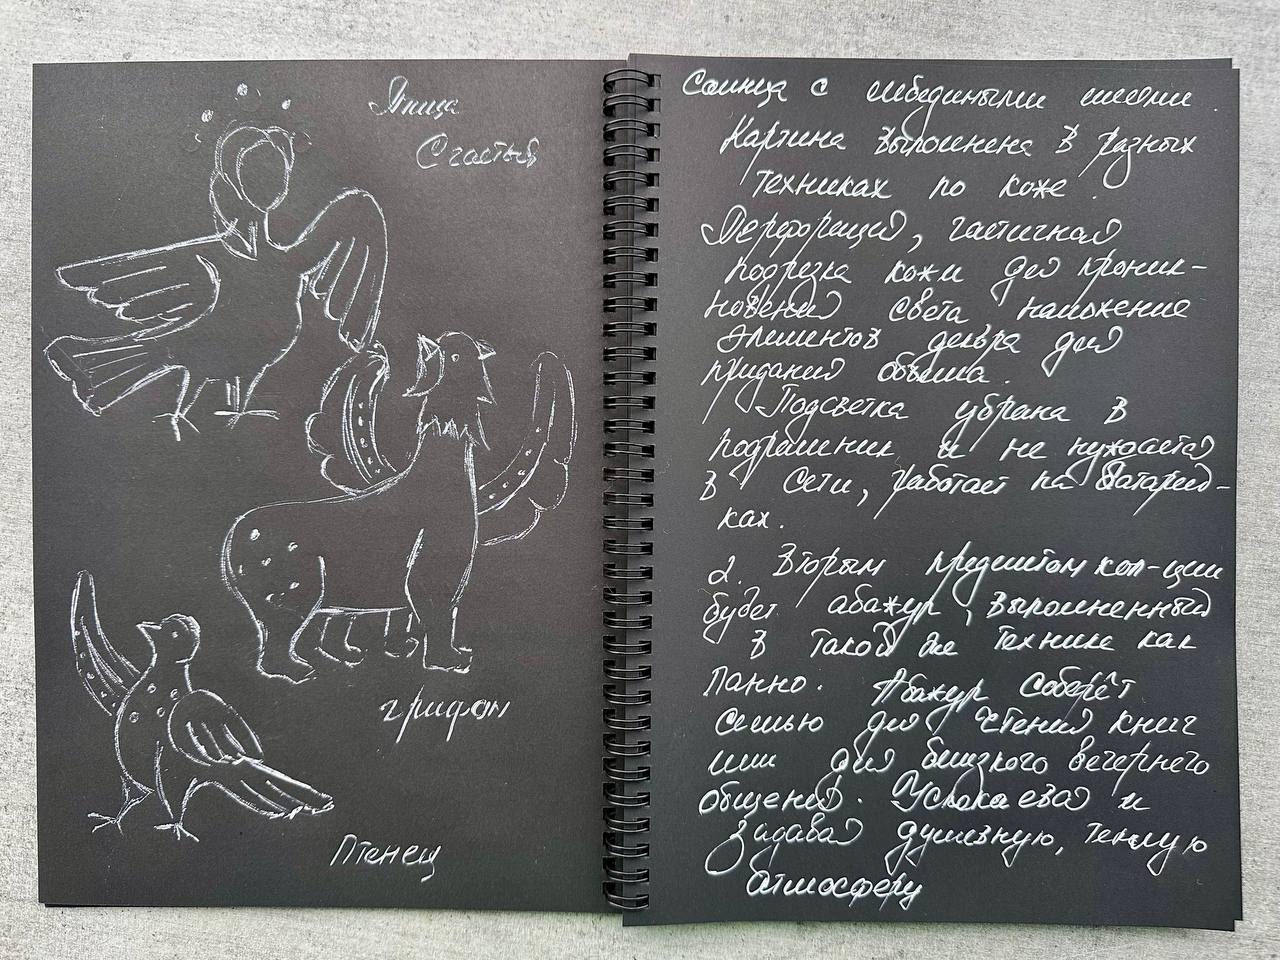 Птица
Счастья
грифон
Птенец
Солнца с лебедиными шеями.
Картина выполнена в разных
техниках по коже.
Перфорация, частичная
подрезка кожи для проник-
новения света наложение
элементов декора для
придания объёма.
Подсветка убрана в
подрамник и не нуждается
в сети, работает на батарей-
ках.
2. Вторым предметом кол-ции
будет абажур, выполненный
в такой же технике как
панно. Абажур соберёт
семью для чтения книг
или для близкого вечернего
общения. Успокаевая и
задавая душевную, теплую
атмосферу